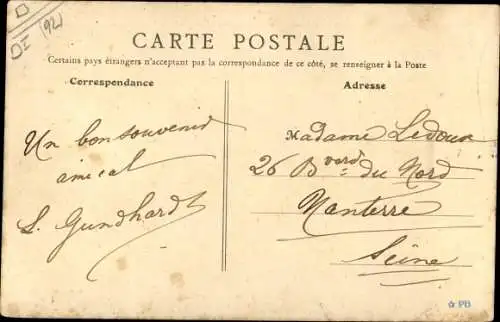 D
DI
(92)
CARTE POSTALE
Certains pays étrangers n'acceptant pas la correspondance de ce côté, se renseigner à la Poste
Correspondance
Un bon souvenir
amical
L. Gundhardt
Adresse
Madame Ledoux
26 Bvard du Nord
Nanterre
Seine
☆ PB